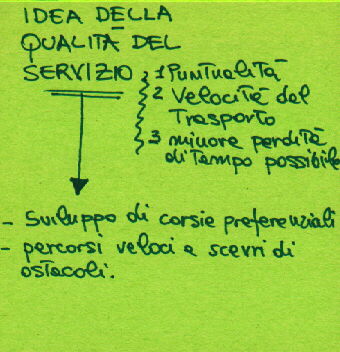 IDEA DELLA
QUALITÀ DEL
SERVIZIO
1 Puntualità
2 Velocità del
Trasporto
3 minore perdita
di Tempo possibile
- Sviluppo di corsie preferenziali
- percorsi veloci e scevri di
ostacoli.